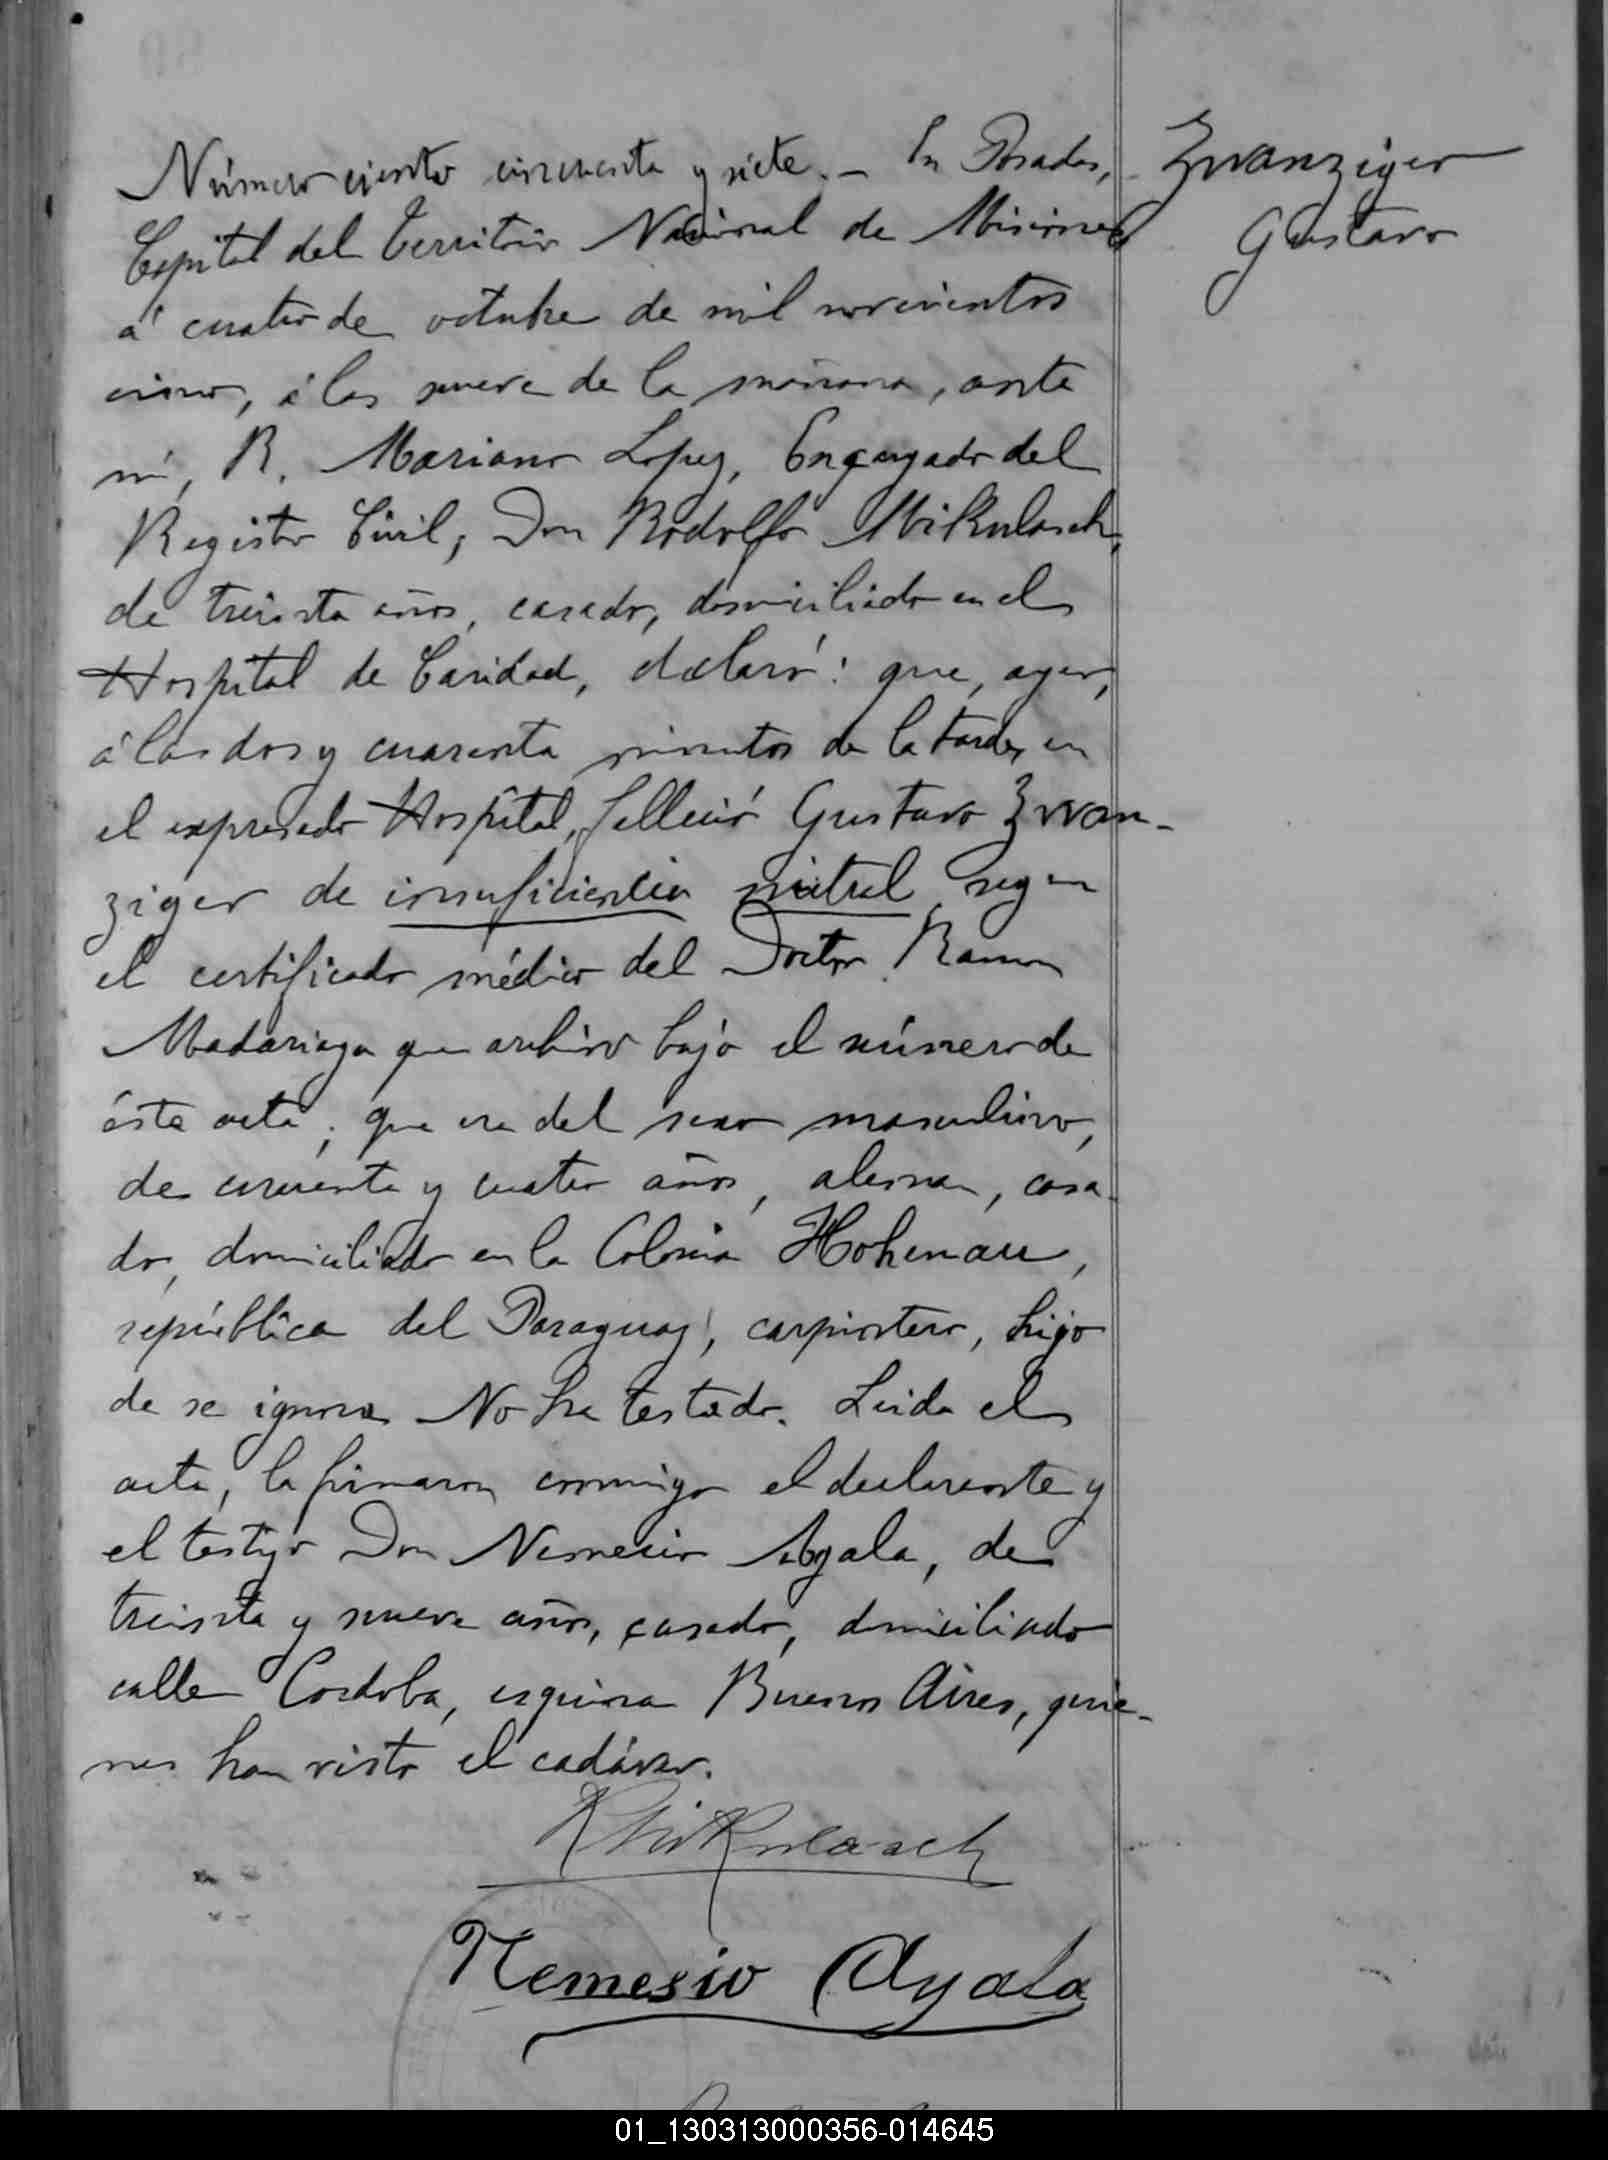 Número ciento cincuenta y siete. — En Posadas,
Capital del Territorio Nacional de Misiones
á cuatro de octubre de mil novecientos
cinco, á las nueve de la mañana, ante
mí, R. Mariano Lopez, Encargado del
Registro Civil, Don Rodolfo Mikulasch,
de treinta años, casado, domiciliado en el
Hospital de Caridad, declaró: que, ayer,
á las dos y cuarenta minutos de la tarde, en
el expresado Hospital, falleció Gustavo Zwan-
ziger de insuficiencia mitral, segun
el certificado médico del Doctor Ramon
Madariaga que archivo bajo el número de
ésta acta; que era del sexo masculino,
de cincuenta y cuatro años, aleman, casa-
do, domiciliado en la Colonia Hohenau,
república del Paraguay, carpintero, hijo
de se ignora. No ha testado. Leida el
acta, la firmaron conmigo el declarante y
el testigo Don Nemecio Ayala, de
treinta y nueve años, casado, domiciliado
calle Cordoba, esquina Buenos Aires, quie-
nes han visto el cadáver.
RMikulasch
Nemesio Ayala
Zwanziger
Gustavo
01_130313000356-014645